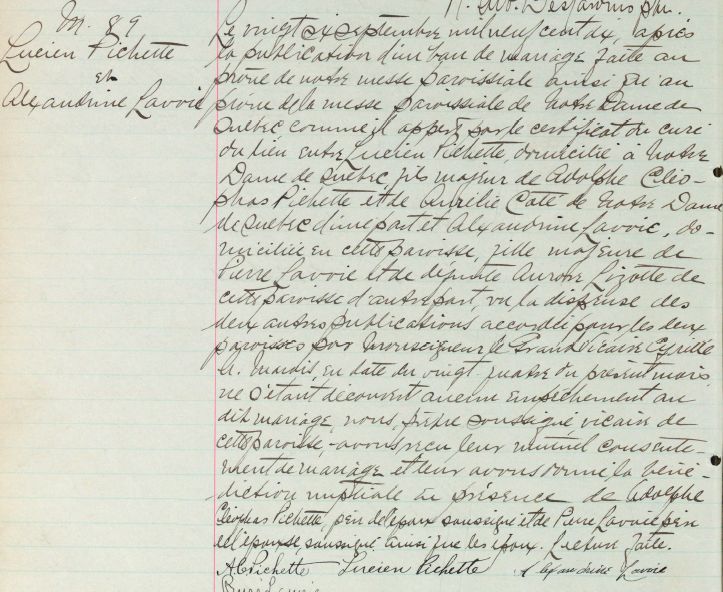 M. 89
Lucien Pichette
et
Alexandrine Lavoie
Le vingt six septembre mil neuf cent dix, après
la publication d'un ban de mariage faite au
prône de notre messe paroissiale ainsi qu'au
prône de la messe paroissiale de Notre Dame de
Québec comme il appert par le certificat du curé
du lieu entre Lucien Pichette, domicilié à Notre
Dame de Québec, fils majeur de Adolphe Cléo-
phas Pichette et de Aurélie Côté de Notre Dame
de Québec d'une part et Alexandrine Lavoie, do-
miciliée en cette paroisse, fille majeure de
Pierre Lavoie et de défunte Aurore Lizotte de
cette paroisse d'autre part, vu la dispense des
deux autres publications accordée pour les deux
paroisses par Monseigneur le Grand Vicaire Cyrille
A. Marois, en date du vingt-quatre du présent mois,
ne s'étant découvert aucun empêchement au
dit mariage, nous, prêtre soussigné vicaire de
cette paroisse, avons reçu leur mutuel consente-
ment de mariage et leur avons donné la béné-
diction nuptiale en présence de Adolphe
Cléophas Pichette, père de l'époux soussigné et de Pierre Lavoie père
de l'épouse soussigné ainsi que les époux. Lecture faite.
A C Pichette Lucien Pichette Alexandrine Lavoie